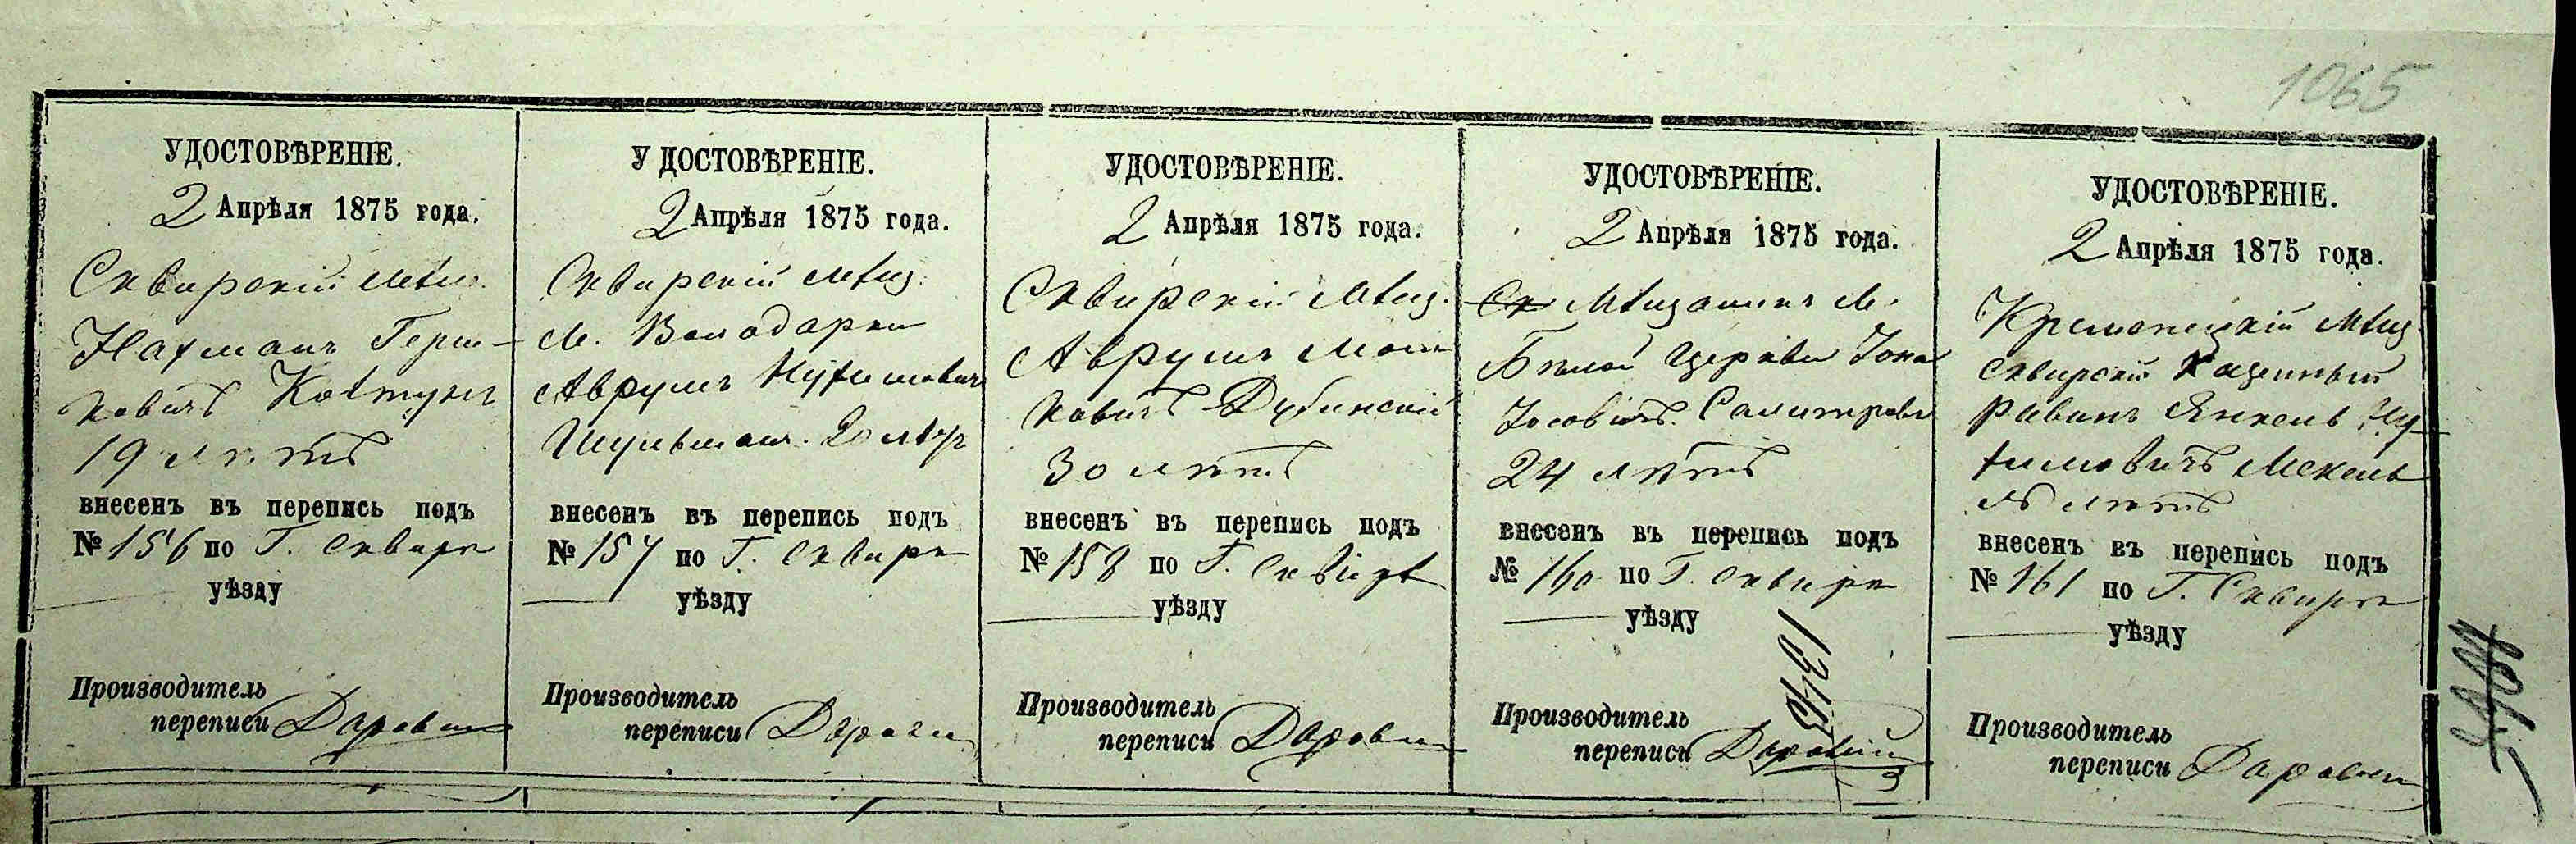 1065
УДОСТОВѢРЕНІЕ.
2 Апрѣля 1875 года.
Сквирскій мѣщ.
Нахманъ Герш-
ковичъ
19 лѣтъ
внесенъ въ перепись подъ
№ 156 по Г. Сквирѣ
уѣзду
Производитель
переписи
УДОСТОВѢРЕНІЕ.
2 Апрѣля 1875 года.
Сквирскій мѣщ.
м. Володарки
Аврумъ Нухимовичъ
Шульман. 20 лѣтъ
внесенъ въ перепись подъ
№ 157 по Г. Сквирѣ
уѣзду
Производитель
переписи
УДОСТОВѢРЕНІЕ.
2 Апрѣля 1875 года.
Сквирскій Мѣщ.
Аврумъ Мош
ковичъ Дубинскій
30 лѣтъ
внесенъ въ перепись подъ
№ 158 по Г. Сквирѣ
уѣзду
Производитель
переписи
УДОСТОВѢРЕНІЕ.
2 Апрѣля 1875 года.
Ск Мѣщанинъ М.
Бѣлой Церкви Іона
Іосовичъ
24 лѣтъ
внесенъ въ перепись подъ
№ 160 по Г. Сквирѣ
уѣзду
Производитель
переписи
УДОСТОВѢРЕНІЕ.
2 Апрѣля 1875 года.
Кременецкій мѣщ.
Сквирскій Казенный
Равинъ Янкель Ну-
химовичъ
лѣтъ
внесенъ въ перепись подъ
№ 161 по Г. Сквирѣ
уѣзду
Производитель
переписи